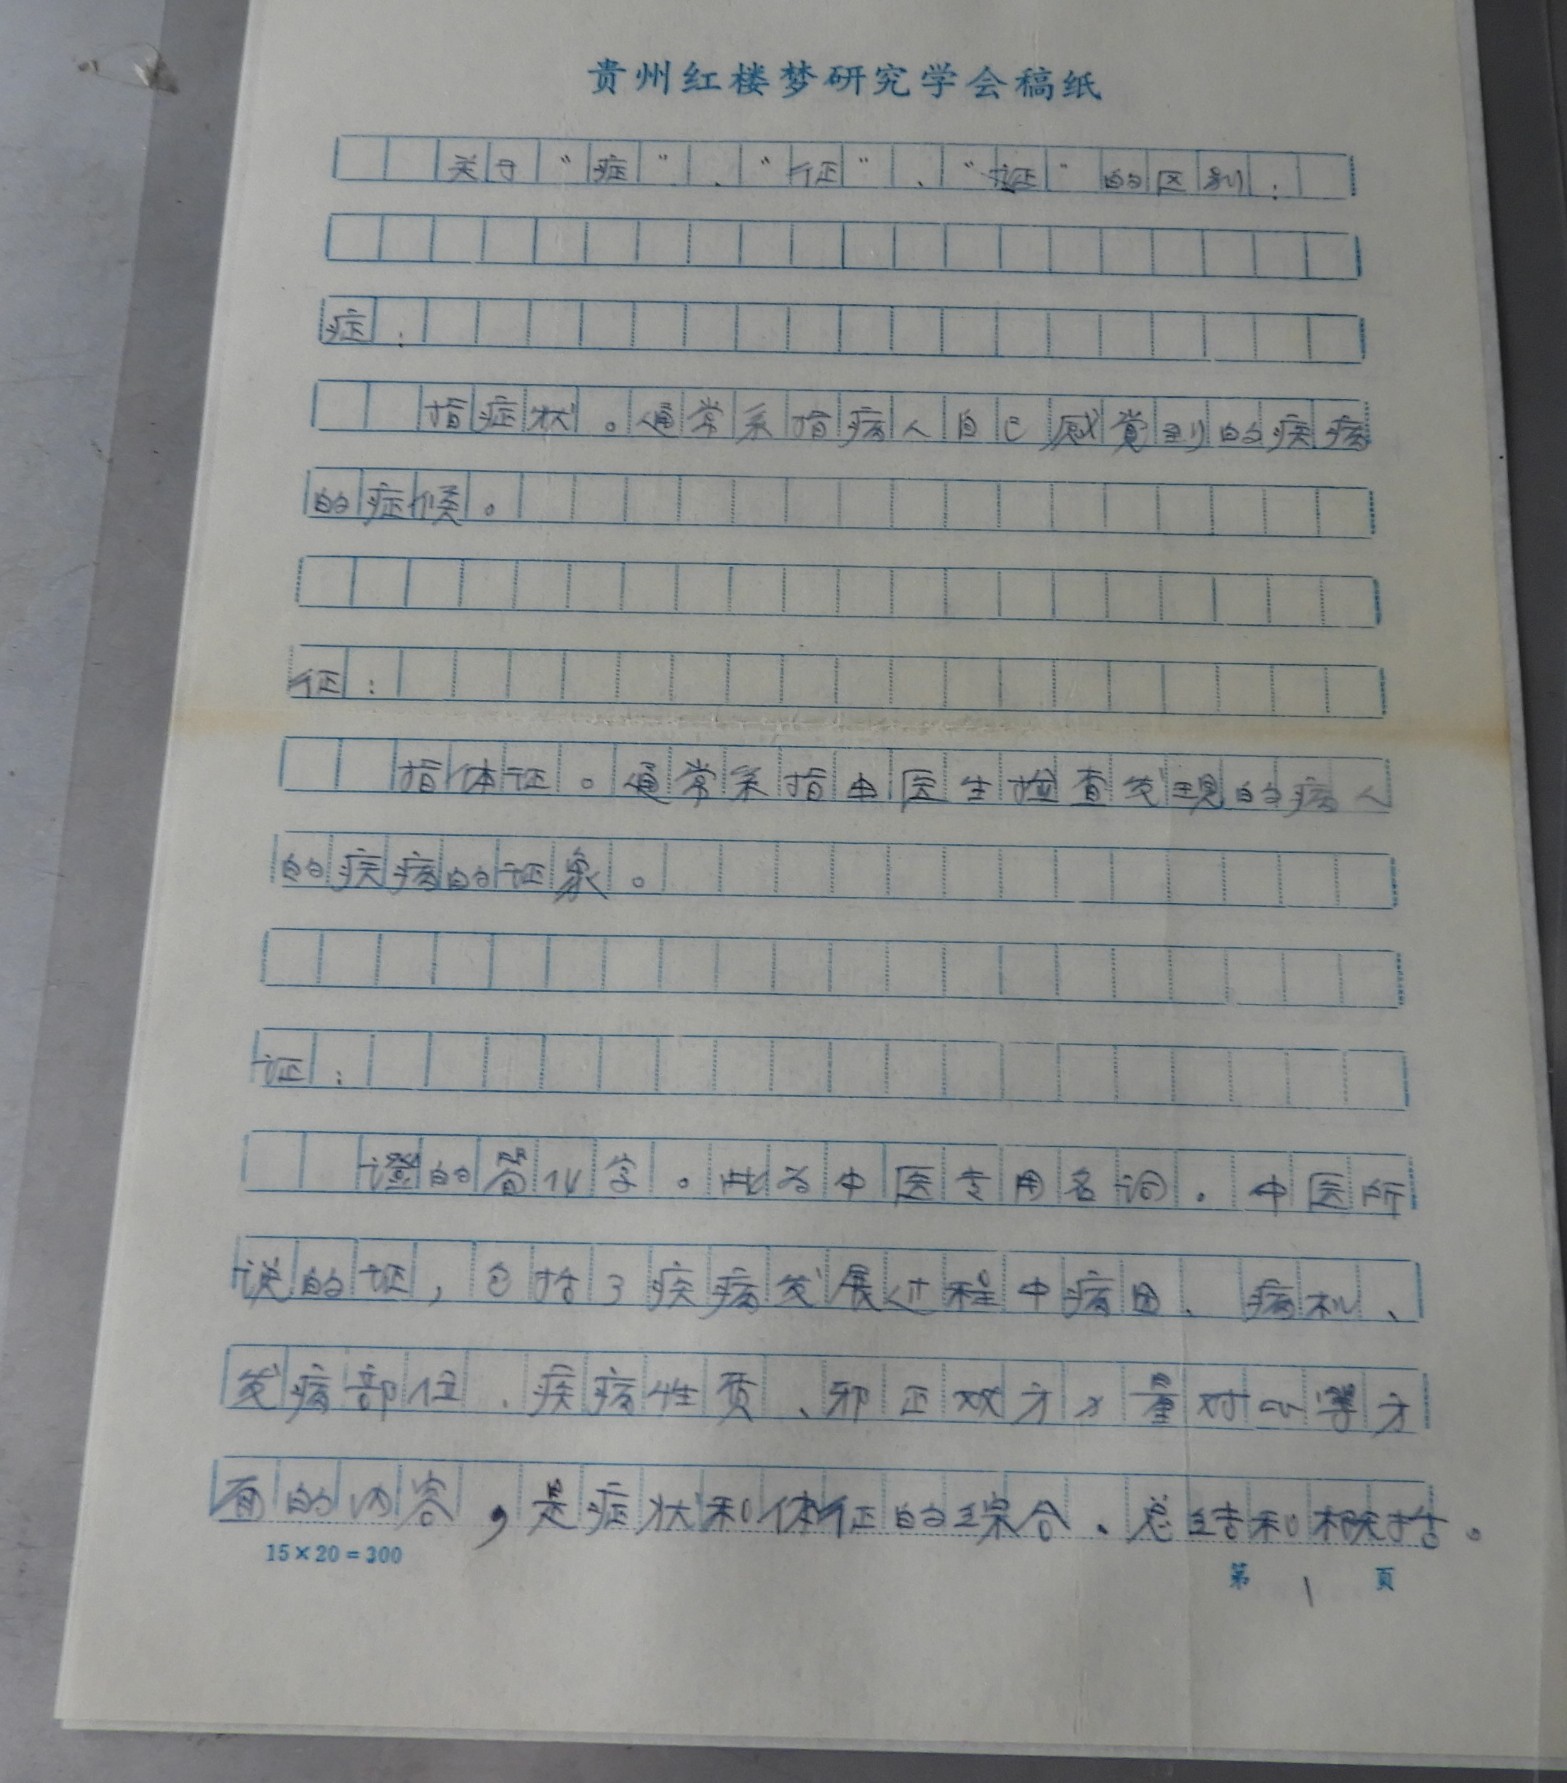 贵州红楼梦研究学会稿纸
关于“症”、“征”、“证”的区别:
症:
指症状。通常系指病人自己感觉到的疾病
的症候。
征:
指体证。通常系指由医生检查发现的病人
的疾病的证象。
证:
證的简化字。此为中医专用名词。中医所
说的证,包括了疾病发展过程中病因、病机、
发病部位、疾病性质、邪正双方力量对比等方
面的内容,是症状和体征的综合、总结和概括。
15×20=300
第 1 页